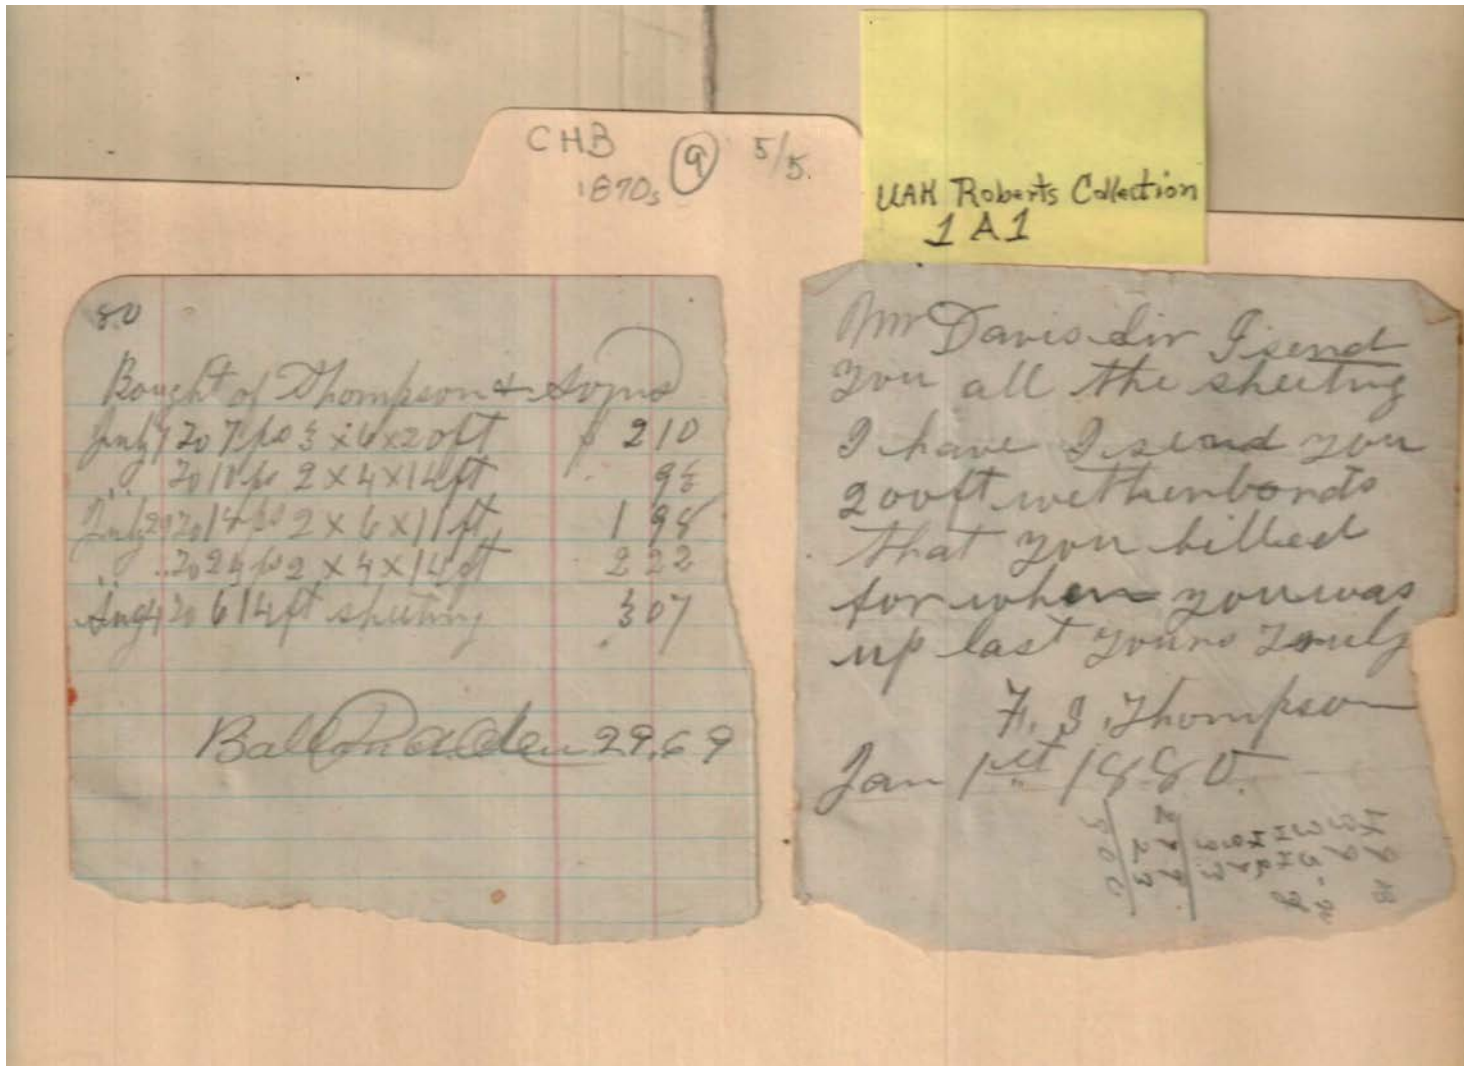 CHB 9 5/5.
1870s
UAH Roberts Collection
1 A 1
80
Bought of Thompson & Sons
July 1 To 7 ps 3 x 6 x 20 ft $ 2 10
" To 10 ps 2 x 4 x 14 ft
July To 14 ps 2 x 6 x 11 ft 1 98
" To 24 ps 2 x 4 x 14 ft 2 22
Aug To 614 ft sheeting 3 07
29.69
Mr Davis Sir I send
You all the sheeting
I have I send you
200 ft wetherbords
that you billed
for when you was
up last yours Truly
F. J. Thompson
Jan 1st 1880.
277
23
300